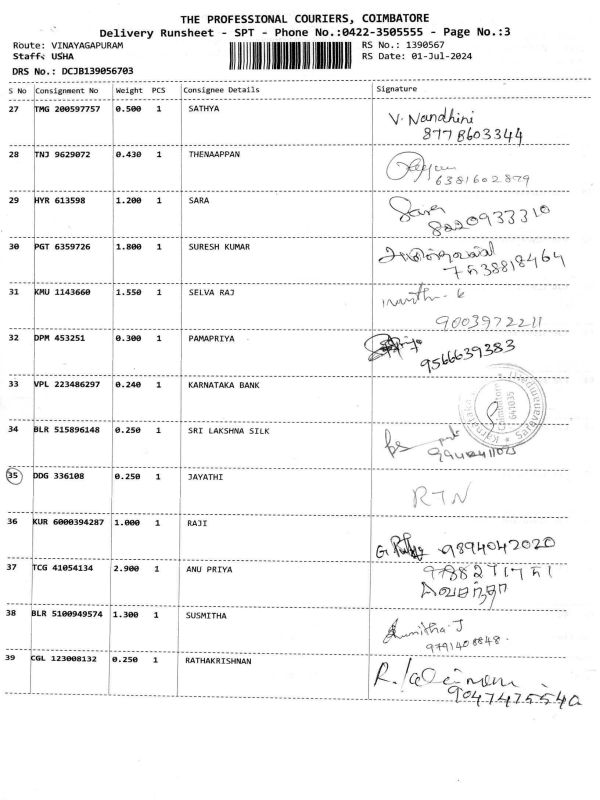 THE PROFESSIONAL COURIERS, COIMBATORE
Delivery Runsheet - SPT - Phone No.:0422-3505555 - Page No.:3
Route: VINAYAGAPURAM RS No.: 1390567
Staff: USHA RS Date: 01-Jul-2024
DRS No.: DCJB139056703
S No Consignment No Weight PCS Consignee Details Signature
27 TMG 200597757 0.500 1 SATHYA V. Nandhini
8778603344
28 TNJ 9629072 0.430 1 THENAAPPAN
6381602879
29 HYR 613598 1.200 1 SARA Sara
8220933310
30 PGT 6359726 1.800 1 SURESH KUMAR
31 KMU 1143660 1.550 1 SELVA RAJ
9003972211
32 DPM 453251 0.300 1 PAMAPRIYA
9566639383
33 VPL 223486297 0.240 1 KARNATAKA BANK
Karnataka
Coimbatore
641035
34 BLR 515896148 0.250 1 SRI LAKSHNA SILK
35 DDG 336108 0.250 1 JAYATHI RTN
36 KUR 6000394287 1.000 1 RAJI
9894042020
37 TCG 41054134 2.900 1 ANU PRIYA
38 BLR 5100949574 1.300 1 SUSMITHA Susmitha. J
9791408848.
39 CGL 123008132 0.250 1 RATHAKRISHNAN